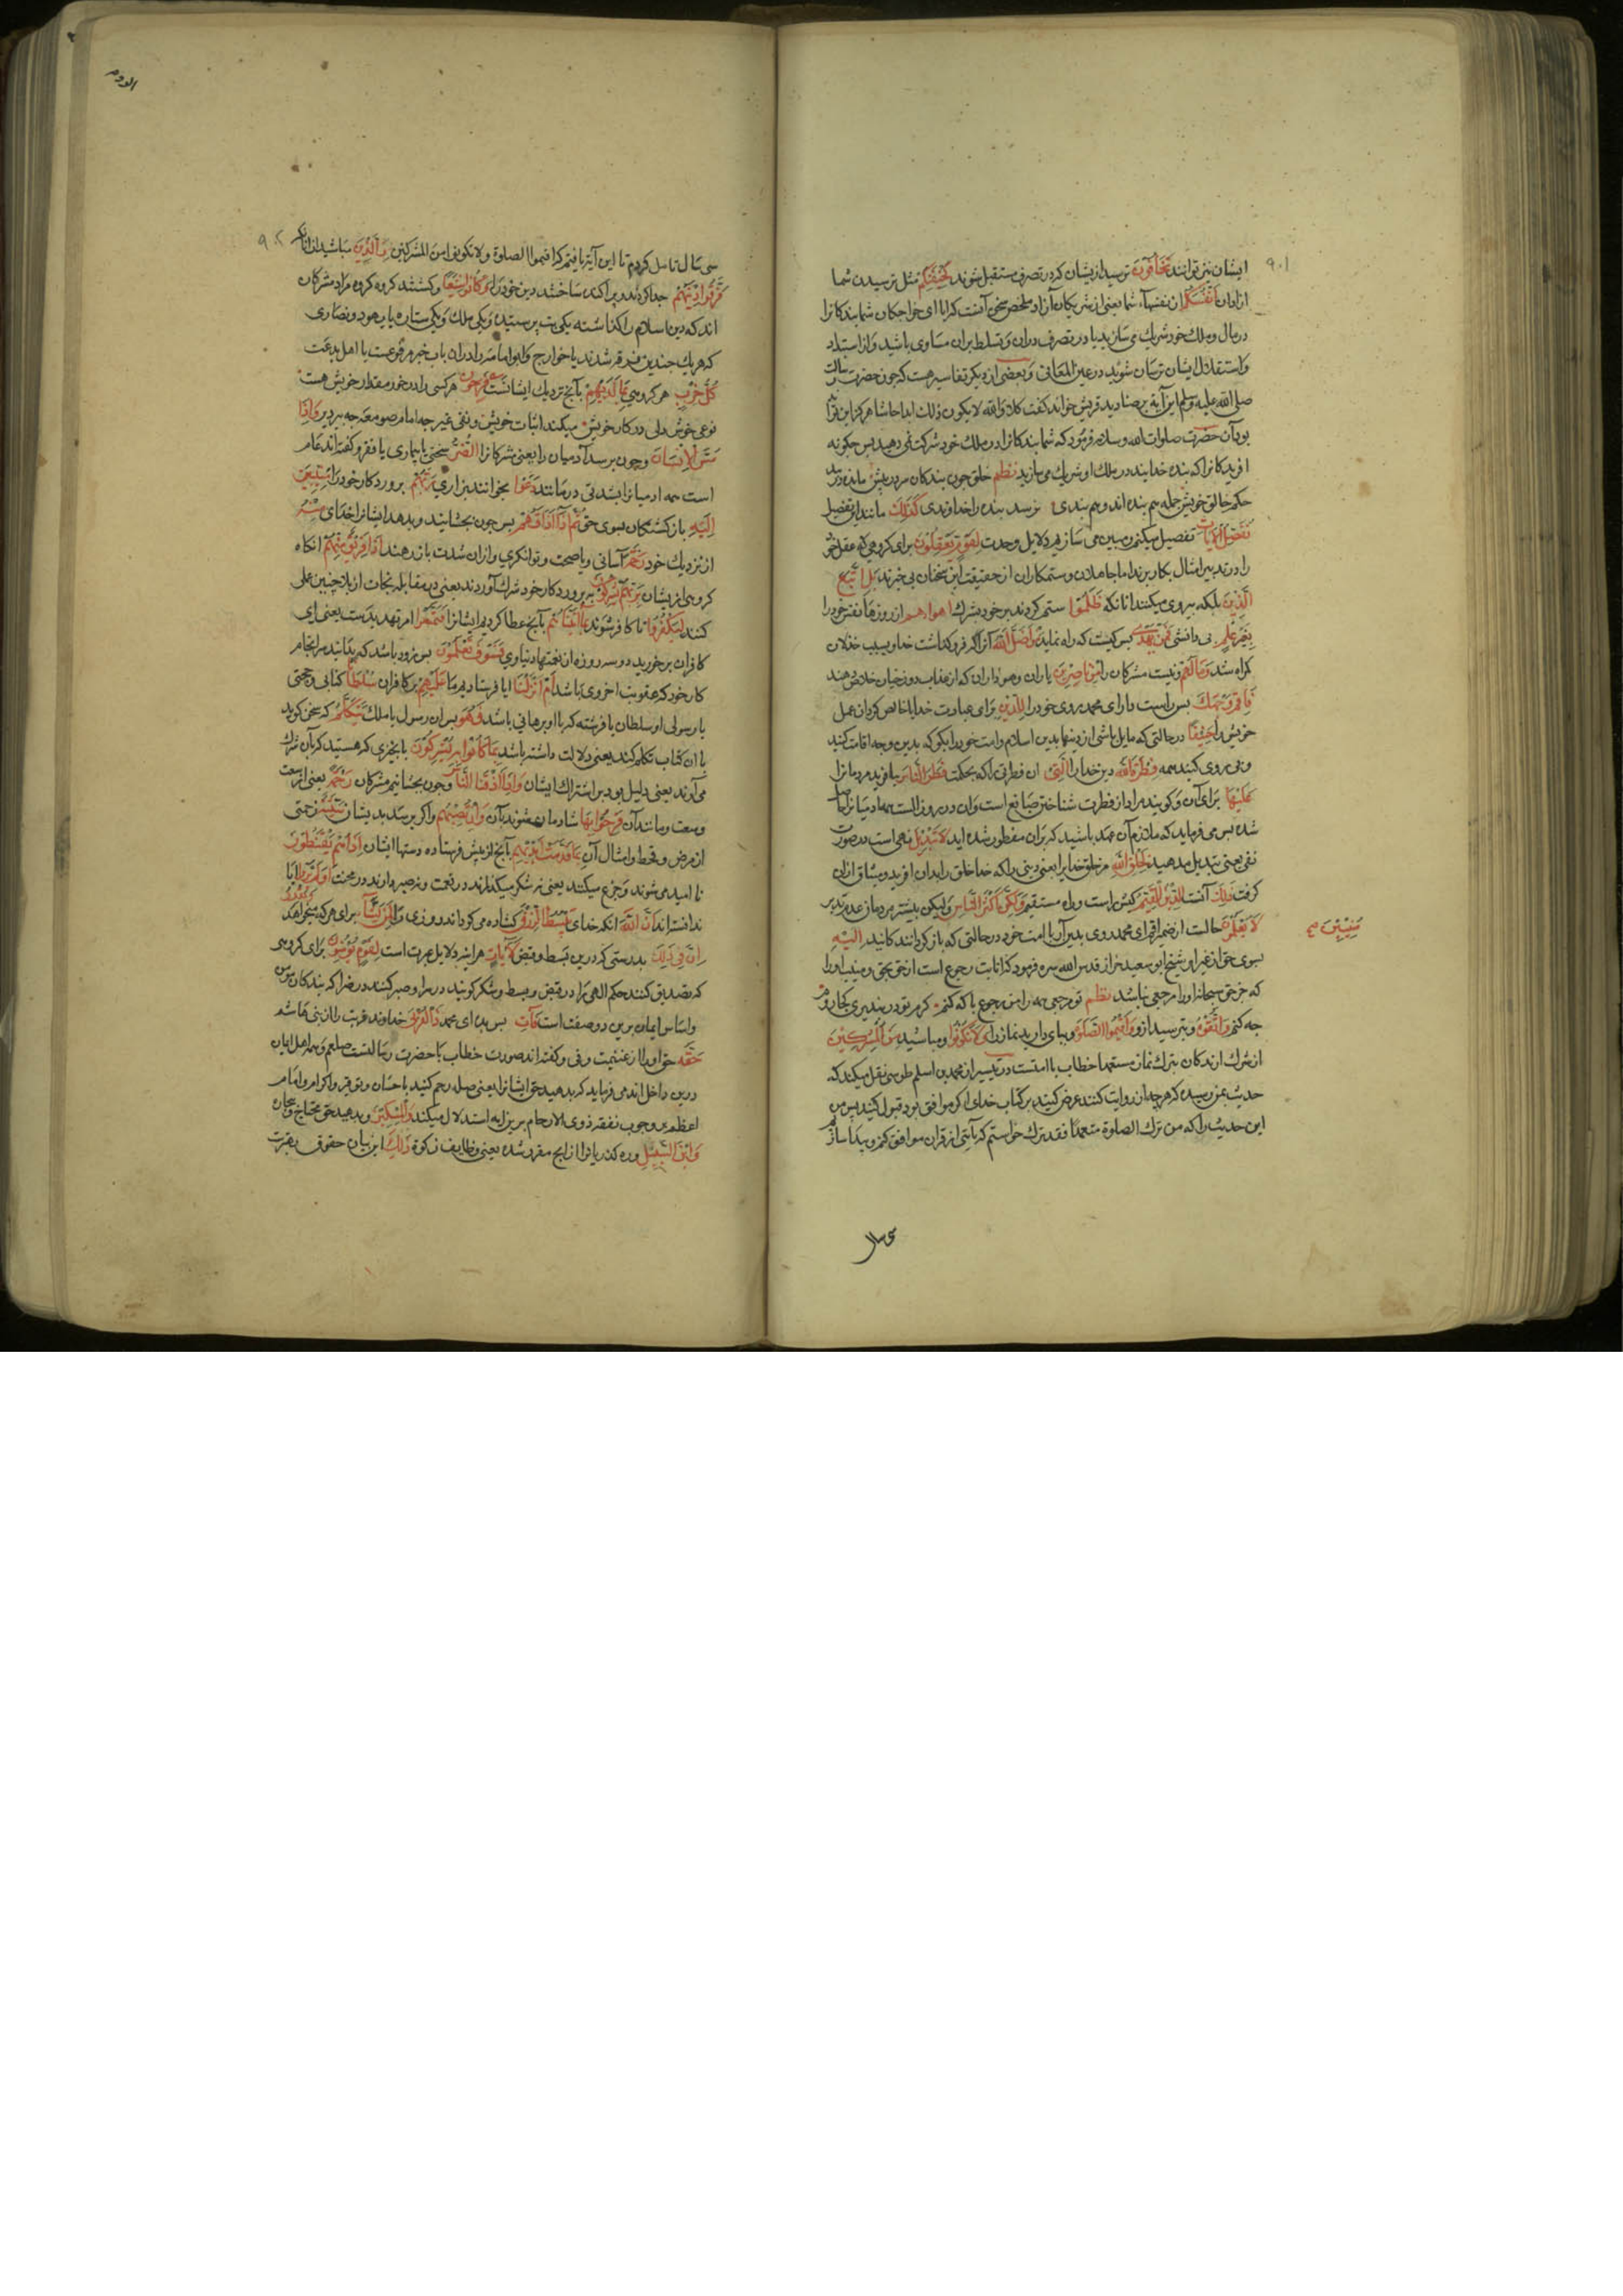 ۹۰۱
ایشان نیز توانند تَخَافُونَهُمْ ترسید از یشان که در تصرف مستقبل شوند كَخِيفَتِكُمْ مثل ترسیدن شما
ازادان اَنْفُسَكُمْ از نفسهاء شما یعنی از شریکان آزاد ملخص سخن آنست که ایا ای خواجکان شما بندکانرا
در مال و ملک خود شریک می سازید یا در تصرف دران و تسلط بران مساوی باشید و از استبداد
و استقلال ایشان ترسان شوید در عین المعانی و بعضی از دیکر تفاسیر هست که چون حضرت رسالت
صلی الله علیه وسلم این آیة بر صنادید قریش خواند کفت کلا والله لا یکون ذلك ابدا حاشا هرکز این نتواند
بود آن حضرت صلوات الله وسلامه فرمود که شما بندکانرا در ملک خود شرکت نمی دهید پس چکونه
افریدکانرا که بنده خدایند در ملک او شریک می سازید نظم خلق چون بندکان سر در پیش مانده در بند
حکم خالق خویش جمله هم بنده اند و هم بندی نرسد بنده را خداوندی كَذَلِكَ مانند این تفصیل
نُفَصِّلُ الْآيَاتِ تفصیل میکنم و مبین می سازیم دلایل وحدت لِقَوْمٍ يَعْقِلُونَ برای کروهی که عقل خود
را در تدبیر امثال بکار برند اما جاهلان و ستمکاران از حقیقت این سخنان بی خبرند بَلِ اتَّبَعَ
الَّذِينَ بلکه پیروی میکنند انانکه ظَلَمُوا ستم کردند بر خود بشرک اهواءهم ارزوهاء نفس خود را
بِغَيْرِ عِلْمٍ بی دانشی فَمَنْ يَهْدِي پس کیست که راه نماید مَنْ اَضَلَّ اللهُ آنرا که فرو کذاشت خدا و بسبب خذلان
کمراه شد وَمَا لَهُمْ و نیست مشرکان را مِنْ نَاصِرِينَ یاران و هواداران که از عذاب دوزخیان خلاص دهند
فَاَقِمْ وَجْهَكَ پس راست دار ای محمد روی خود را لِلدِّينِ برای عبادت خدا یا خالص کردان عمل
خویش را حَنِيفًا در حالتی که مایل باشی از دینها بدین اسلام و امت خود را بکو که بدین وجه اقامت کنید
و پی روی کنید همه فِطْرَةَ اللهِ دین خدایرا الَّتِي ان فطرتی را که بحکمت فَطَرَ النَّاسَ بیافرید مردمانرا
عَلَيْهَا برای آن و کویند مراد از فطرت شناختن صانع است و ان در روز الست همه ادمیانرا حاصل
شده پس می فرماید که ملازم آن عهد باشید که بران مفطور شده اید لَا تَبْدِيلَ نهی است در صورت
نفی یعنی تبدیل مدهید لِخَلْقِ اللهِ مر خلق خدایرا یعنی دینی را که خدا خلق را بدان افرید و میثاق ازان
کرفت ذَلِكَ آنست الدِّينُ الْقَيِّمُ کیش راست و راه مستقیم وَلَكِنَّ اَكْثَرَ النَّاسِ و لیکن بیشتر مردمان از عدم تدبر
لَا يَعْلَمُونَ حالست از ضمیر اقم ای محمد روی بدین آر با امت خود در حالتی که باز کردانند کانید اِلَيْهِ
مُنِيبِينَ صح
بسوی حق از غیر او شیخ ابو سعید خراز قدس الله سره فرمود که انابت رجوع است از حق بحق و منیب او را
که جز حق سبحانه او را مرجعی نباشد نظم تو مرجعی همه را من رجوع باکه کنم کرم تو در نپذیری کجا روم
چه کنم وَاتَّقُوهُ و بترسید ازو وَاَقِيمُوا الصَّلَاةَ و بپای دارید نماز را وَلَا تَكُونُوا و مباشید مِنَ الْمُشْرِكِينَ
از شرک ارندکان بترک نماز متعمدا خطاب با امتست در تیسیر از محمد بن اسلم طوسی نقل میکند که
حدیث بمن رسیده که هر چه از من روایت کنند عرض کنید بر کتاب خدای اکر موافق بود قبول کنید پس من
این حدیث را که من ترك الصلوة متعمدا فقد کفر خواستم که بآیتی از قران موافق کنم و پیدا سازم
سی سال
الروم
۹۰۲
سی سال تامل کردم تا این آیة یافتم که اقیموا الصلوة ولا تکونوا من المشرکین مِنَ الَّذِينَ مباشید از آنانکه
فَرَّقُوا دِينَهُمْ جدا کردند و پراکنده ساختند دین خود را وَكَانُوا شِيَعًا و کشتند کروه کروه مراد مشرکان
اند که دین اسلام را کذاشته یکی بت پرستید و یکی ملک و یکی ستاره یا یهود و نصاری
که هر یک چندین فرقه شدند یا خوارج و ابو امامه را دران باب خبر مرفوعست با اهل بدعت
كُلُّ حِزْبٍ هر کروهی بِمَا لَدَيْهِمْ بآنچ نزدیک ایشانست فَرِحُونَ هر کسی را در خور مقدار خویش هست
نوعی خوش دلی در کار خویش میکند اثبات خویش و نفی غیر چه امام صومعه چه پیر دیر وَاِذَا
مَسَّ الْاِنْسَانَ و چون برسد آدمیان را یعنی مشرکانرا الضُّرُّ سختی یا بیماری یا فقر و کفته اند عام
است همه ادمیانرا بشدتی در مانند دَعَوْا بخوانند بزاری رَبَّهُمْ پروردکار خود را مُنِيبِينَ
اِلَيْهِ باز کشتکان بسوی حق ثُمَّ اِذَا اَذَاقَهُمْ پس چون بچشانید و بدهد ایشانرا خدای مِنْهُ
از نزدیک خود رَحْمَةً آسانی و یا صحت و توانکری و ازان شدت باز رهند اِذَا فَرِيقٌ مِنْهُمْ انکاه
کروهی از یشان بِرَبِّهِمْ يُشْرِكُونَ به پروردکار خود شرک آوردند یعنی در مقابله نجات از بلا چنین عملی
کنند لِيَكْفُرُوا تا کافر شوند بِمَا اٰتَيْنَاهُمْ بآنچ عطا کردیم ایشانرا فَتَمَتَّعُوا امر تهدیدست یعنی ای
کافران برخورید دو سه روزه از نعمتهاء دنیاوی فَسَوْفَ تَعْلَمُونَ پس زود باشد که بدانید سرانجام
کار خود که عقوبت اخروی باشد اَمْ اَنْزَلْنَا ایا فرستادیم ما عَلَيْهِمْ بر کافران سُلْطَانًا کتابی و حجتی
یا رسولی او سلطان یا فرشته که با او برهانی باشد فَهُوَ پس ان رسول یا ملک يَتَكَلَّمُ که سخن کوید
یا ان کتاب تکلم کند یعنی دلالت داشته باشد بِمَا كَانُوا بِهِ يُشْرِكُونَ بآن چیزی که هستید که بآن شرک
می آرند یعنی دلیل بود بر اشتراک ایشان وَاِذَا اَذَقْنَا النَّاسَ و چون بچشانیم مشرکان رَحْمَةً یعنی از نعمت
وسعت و مانند آن فَرِحُوا بِهَا شادمان شوند بآن وَاِنْ تُصِبْهُمْ و اکر برسد بدیشان سَيِّئَةٌ زحمتی
از مرض و قحط و امثال آن بِمَا قَدَّمَتْ اَيْدِيهِمْ بآنچ از پیش فرستاده دستهاء ایشان اِذَا هُمْ يَقْنَطُونَ
نا امید می شوند و جزع میکنند یعنی نه شکر میکذارند در نعمت و نه صبر دارند در محنت اَوَلَمْ يَرَوْا ایا
ندانسته اند اَنَّ اللهَ انکه خدای يَبْسُطُ الرِّزْقَ کشاده می کرداند روزی را لِمَنْ يَشَاءُ برای هر که میخواهد وَيَقْدِرُ
اِنَّ فِي ذَلِكَ بدرستی که درین بسط و قبض لَآيَاتٍ هر اینه دلایل عبرت است لِقَوْمٍ يُؤْمِنُونَ برای کروهی
که تصدیق کنند حکم الهی را در قبض و بسط و شکر کویند در سرا و صبر کنند در ضرا که بندکان مومن
و اساس ایمان برین دو صفت است فَاٰتِ پس بده ای محمد ذَا الْقُرْبَى خداوند قربت را از بنی هاشم
حَقَّهُ حق او را از غنیمت و فی و کفته اند صورت خطاب با حضرت رسالتست صلعم و همه اهل ایمان
درین داخل اند می فرماید که بدهید حق ایشانرا یعنی صله رحم کنید باحسان و توقیر و اکرام و امام
اعظم بر وجوب نفقه ذوی الارحام برین ایه استدلال میکند وَالْمِسْكِينَ و بدهید حق محتاج و بیچاره
وَابْنَ السَّبِيلِ و ره کذریانرا از انچ مقرر شده یعنی وظایف زکوة ذَلِكَ این بیان حقوق بقربت